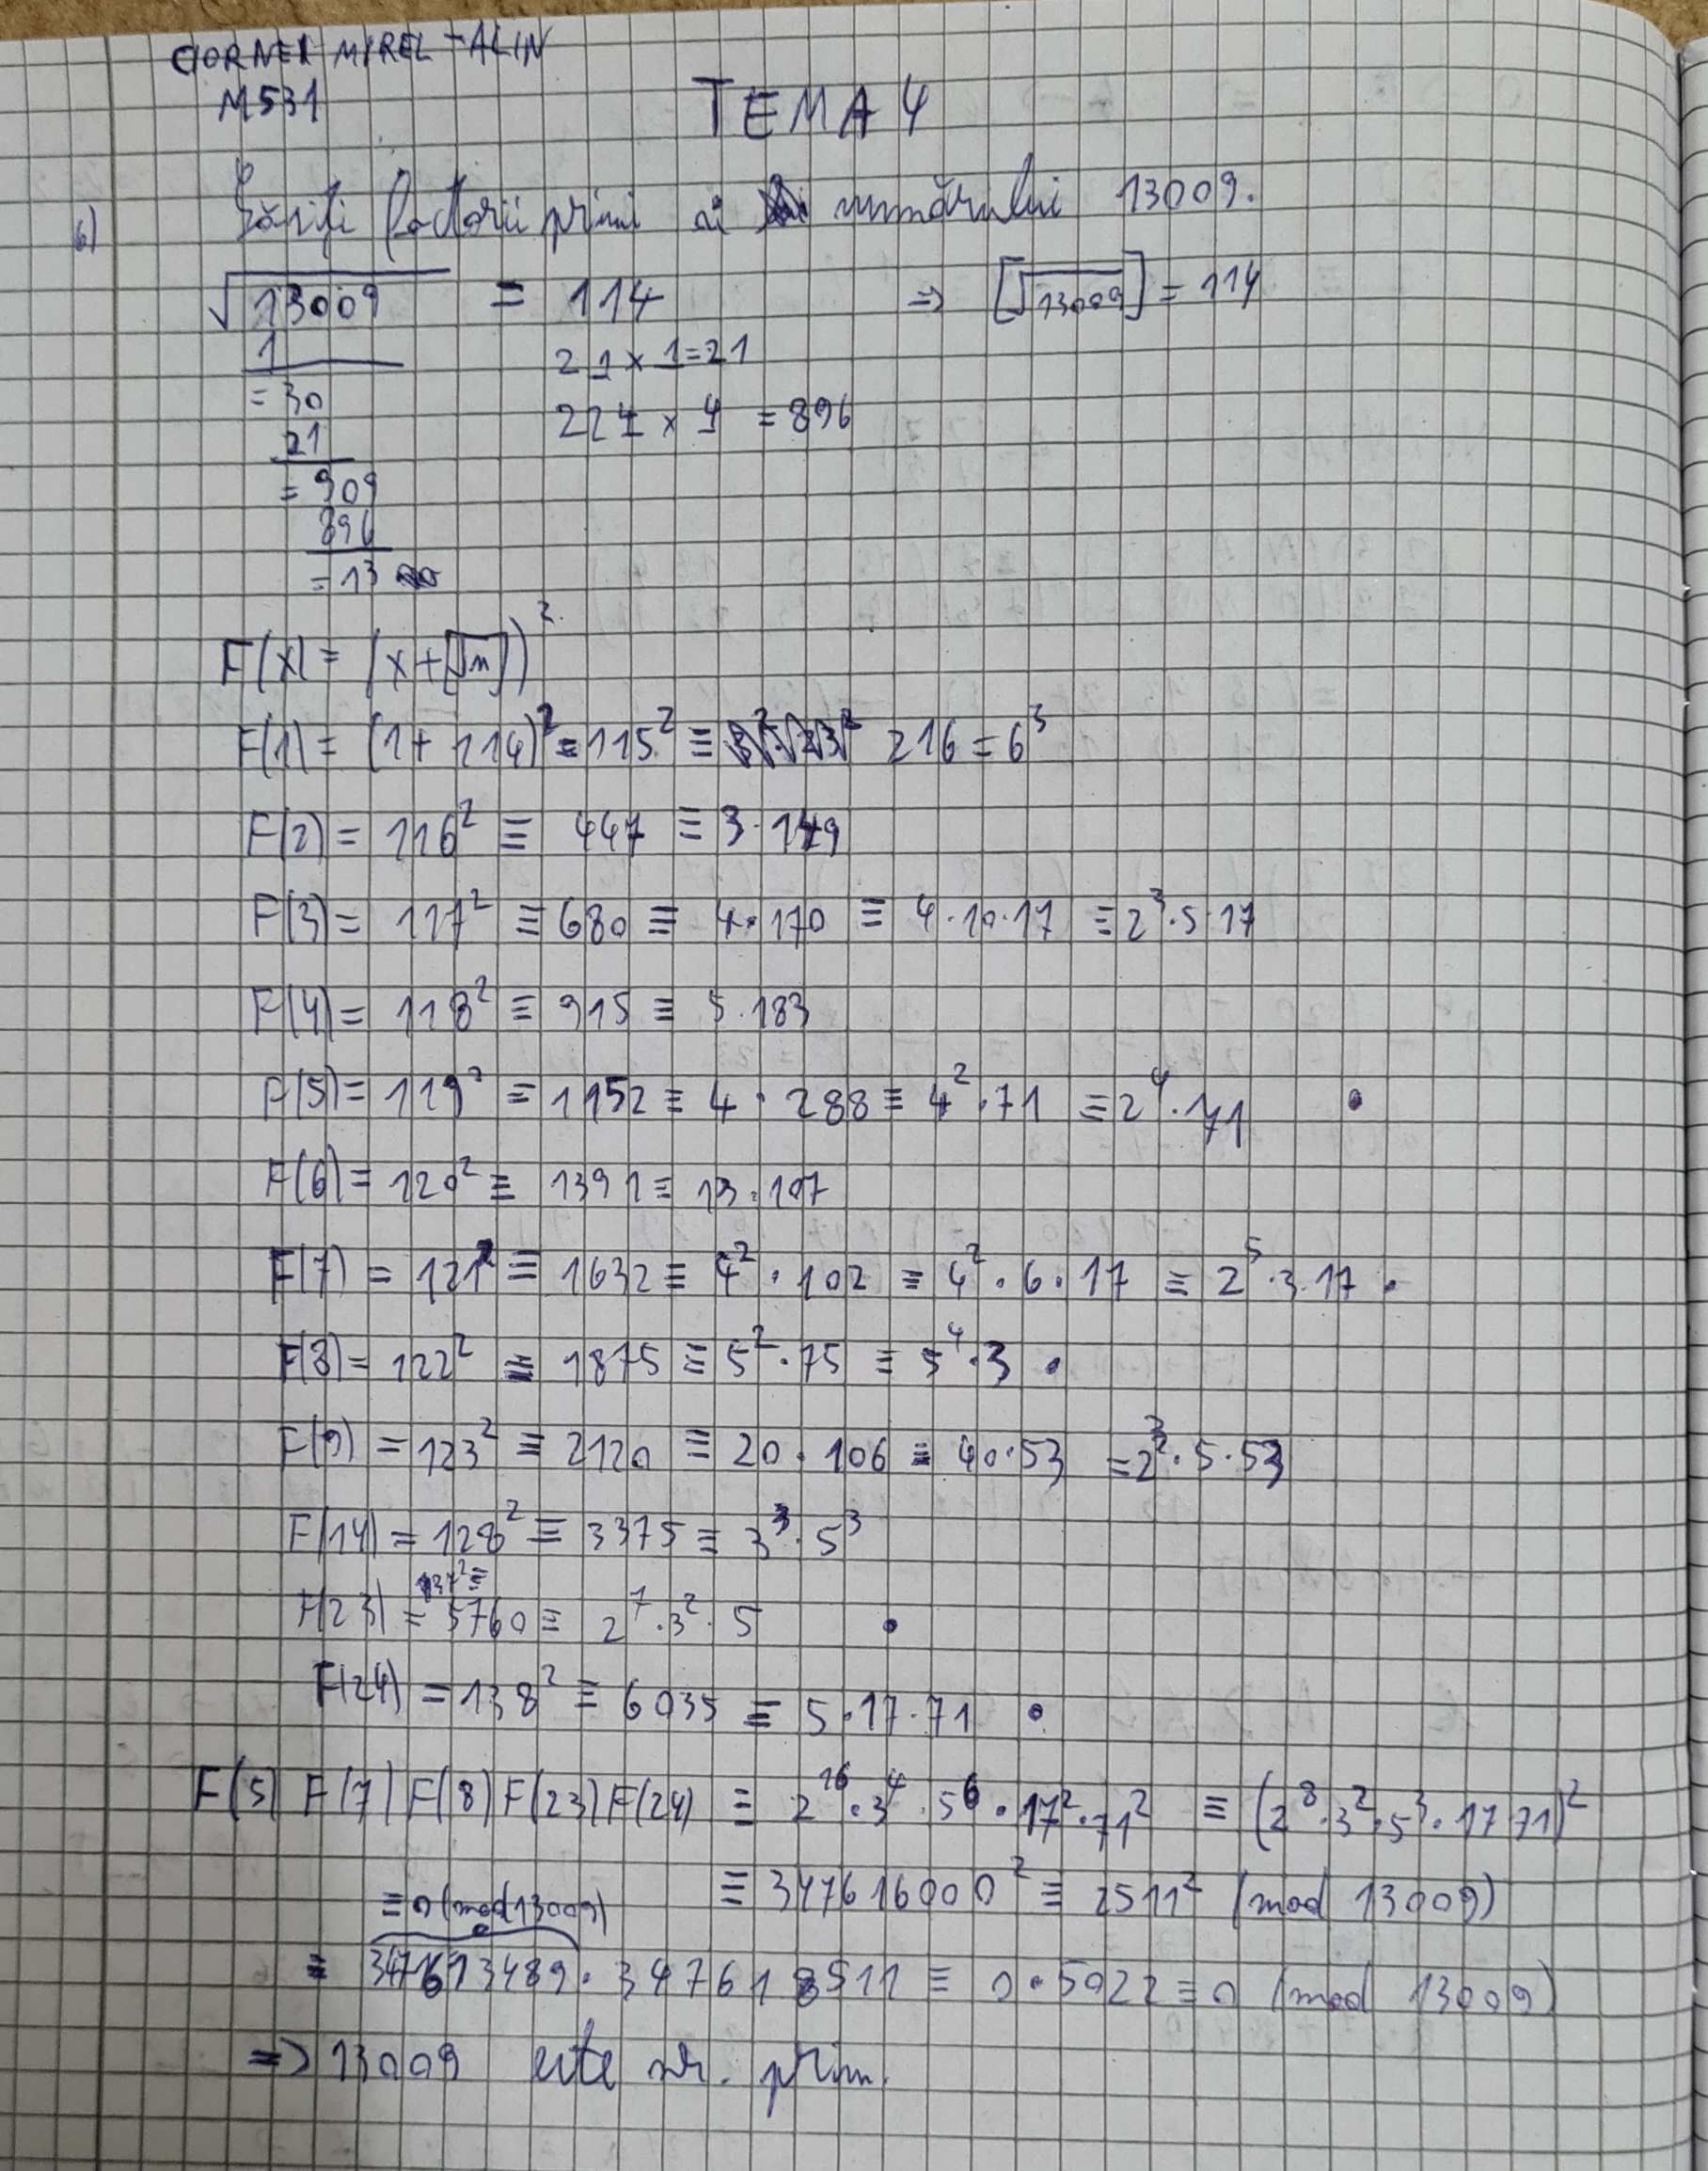 CIORNEI MIREL-ALIN
M531
TEMA 4
6) Găsiți factorii primi ai numărului 13009.
√13009 = 114 ⇒ [√13009] = 114
1 21 x 1=21
= 30 224 x 4 = 896
21
= 909
896
= 13
F(x) = (x+[√n])²
F(1) = (1+114)² = 115² ≡ 216 = 6³
F(2) = 116² ≡ 447 ≡ 3·149
F(3) = 117² ≡ 680 ≡ 4·170 ≡ 4·10·17 ≡ 2³·5·17
F(4) = 118² ≡ 915 ≡ 5·183
F(5) = 119² ≡ 1152 ≡ 4·288 ≡ 4²·71 ≡ 2⁴·71 •
F(6) = 120² ≡ 1391 ≡ 13·107
F(7) = 121² ≡ 1632 ≡ 4²·102 ≡ 4²·6·17 ≡ 2⁵·3·17 •
F(8) = 122² ≡ 1875 ≡ 5²·75 ≡ 5⁴·3 •
F(9) = 123² ≡ 2120 ≡ 20·106 ≡ 40·53 = 2³·5·53
F(14) = 128² ≡ 3375 ≡ 3³·5³
F(23) = 137² ≡ 5760 ≡ 2⁷·3²·5 •
F(24) = 138² ≡ 6035 ≡ 5·17·71 •
F(5) F(7) F(8) F(23) F(24) ≡ 2¹⁶·3⁴·5⁶·17²·71² ≡ (2⁸·3²·5³·17 71)²
≡ 347616000² ≡ 2511² (mod 13009)
≡ 0 (mod 13009)
≡ 347613489·347618511 ≡ 0·5022 ≡ 0 (mod 13009)
⇒ 13009 este nr. prim.